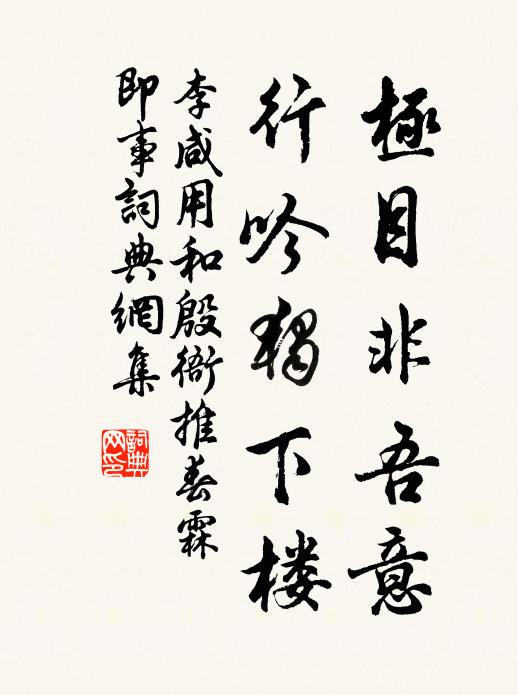 極目非吾意
行吟獨下楼
李咸用和殷衙推春霖
即事詞典網集
詞典
网印